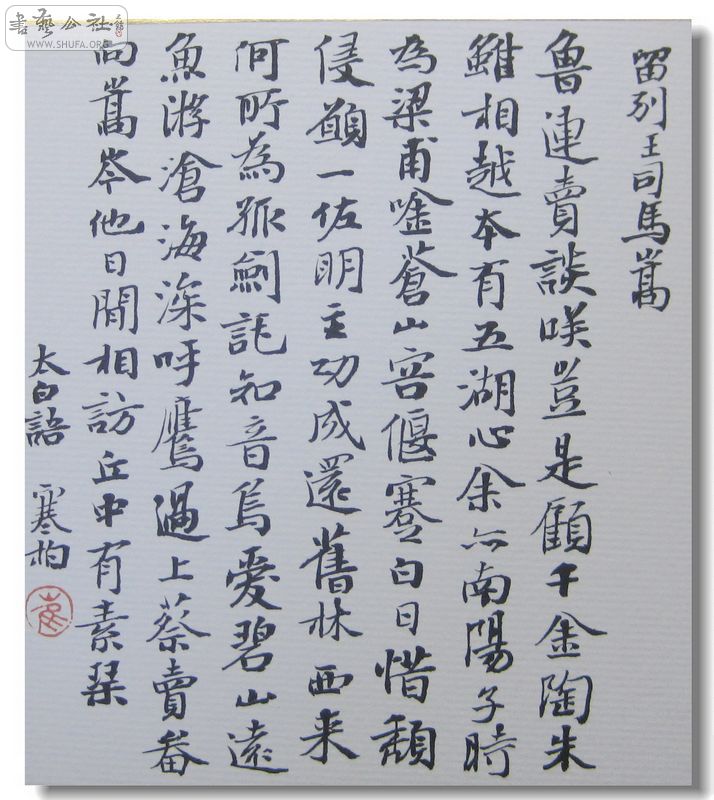 書藝公社
WWW.SHUFA.ORG
留別王司馬嵩
魯連賣談咲豈是顧千金陶朱
雖相越本有五湖心余亦南陽子時
為梁甫唫蒼山容偃蹇白日惜頹
侵願一佐明主功成還舊林西来
何所為孤劍託知音鳥愛碧山遠
魚游滄海深呼鷹過上蔡賣畚
向嵩岑他日閒相訪丘中有素琹
太白語 寒柏